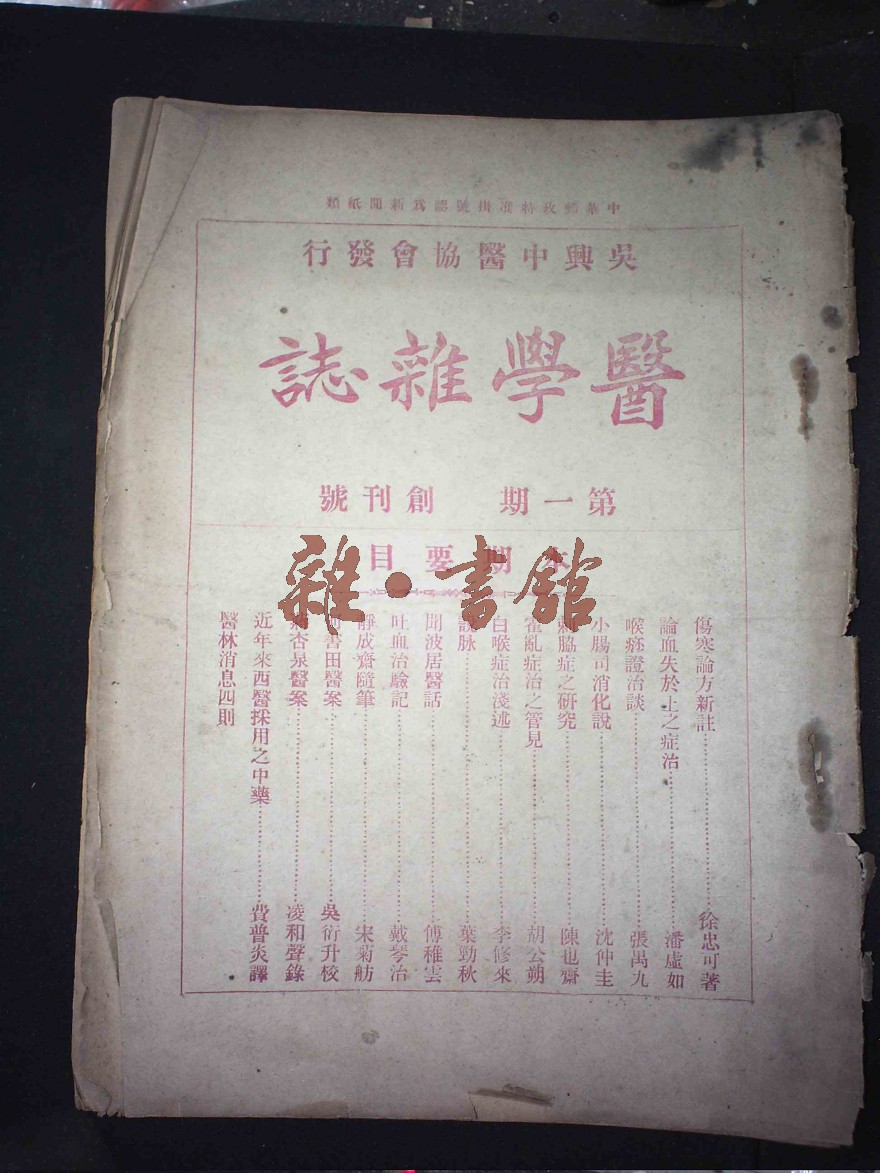 中華郵政特准掛號認爲新聞紙類
吳興中醫協會發行
醫學雜誌
第一期 創刊號
本期要目
雜·書館
傷寒論方新註……徐忠可著
論血失於上之症治……潘虛如
喉痧證治談……張禹九
小腸司消化說……沈仲圭
脇症之研究……陳也齋
霍亂症治之管見……胡公朔
白喉症治淺述……李修來
說脉……葉勁秋
聞波居醫話……傅稚雲
吐血治驗記……戴琴治
靜成齋隨筆……宋菊舫
書田醫案……吳衍升校
杏泉醫案……凌和聲錄
近年來西醫採用之中藥……費普炎譯
醫林消息四則